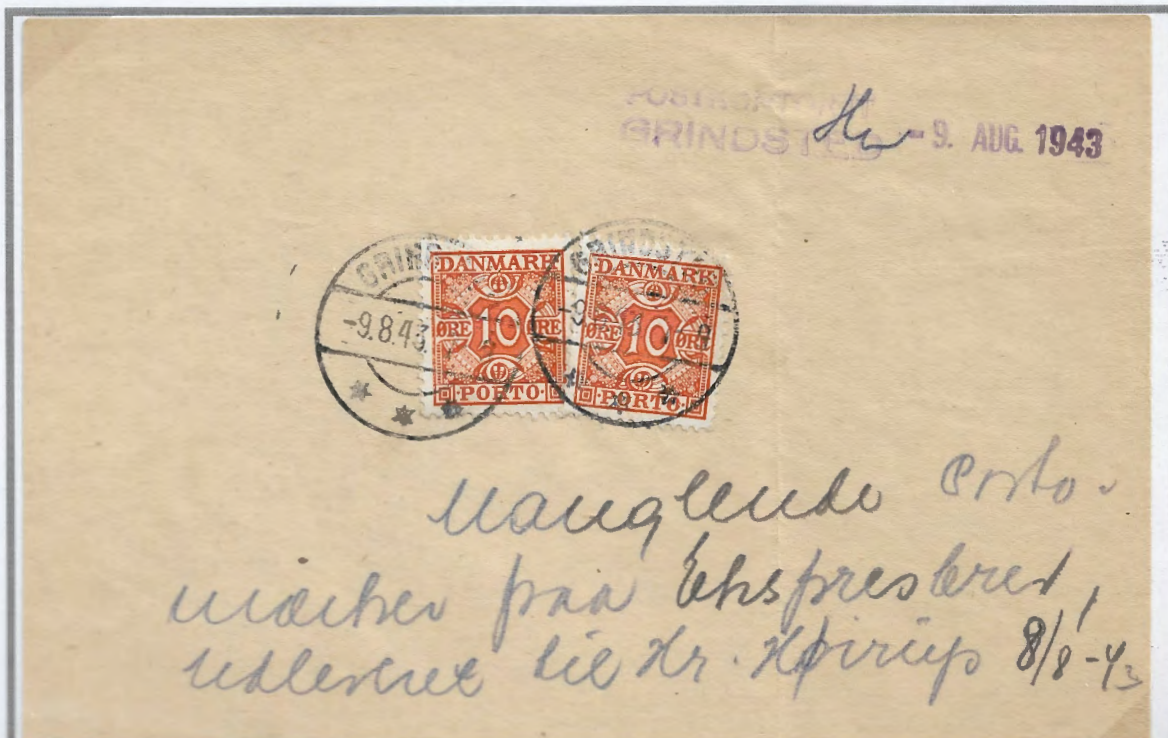 POSTKONTORET
GRINDSTED - 9. AUG. 1943
GRINDSTED
-9.8.43.
DANMARK
ØRE 10 ØRE
PORTO
GRINDSTED
-9.
DANMARK
ØRE 10 ØRE
PORTO
Manglende Porto-
mærker paa Ekspresbrev,
udleveret til Hr. Høirup 8/8-43